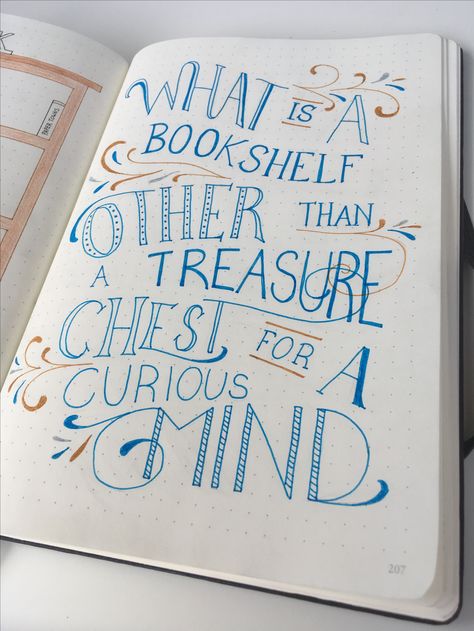 K
PAPER TOWNS
WHAT IS A
BOOKSHELF
OTHER THAN
A TREASURE
CHEST FOR A
CURIOUS
MIND
207